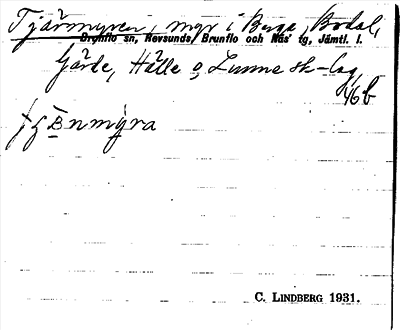 Tjärmyren, myr i Berge, Bodal,
Brunflo sn, Revsunds, Brunflo och Näs' tg, Jämtl. l.
Gärde, Hälle o. Lunne sk-lag
46b
C. LINDBERG 1931.